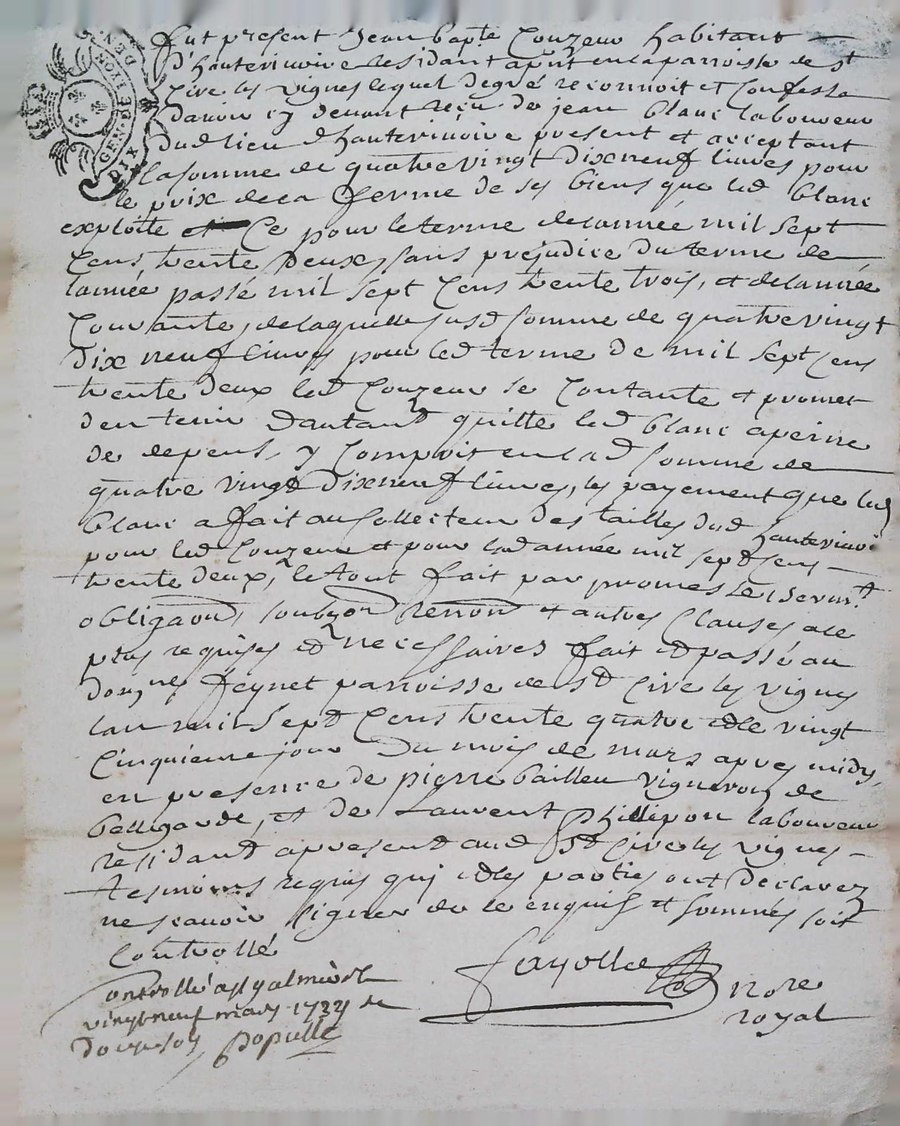 GEN. DE LYON
DIX DEN.
fut present Jean bapte Couzeur habitant
d'hauterivoire residant a prst en la paroisse de st
Cire les vignes lequel de gré reconnoit et Confesse
davoir cy devant reçu de jean blanc laboureur
dud lieu d'hauterivoire present et acceptant
la somme de quatre vingt dix neuf livres pour
le prix de la ferme de ses biens que led blanc
exploite Ce pour le terme de lannée mil sept
Cens trente deux, sans prejudice du terme de
lannée passé mil sept Cens trente trois, et de lannée
Courante, de laquelle susd somme de quatre vingt
dix neuf livres pour led terme de mil sept cens
trente deux led Couzeur se Contante et promet
den tenir dautant quitte led blanc a peine
de depens, y Compris en lad somme de
quatre vingt dix neuf livres, les payement que led
blanc a fait au Collecteur des tailles dud hauterivoi
pour led Couzeur et pour lad année mil sept cens
trente deux, le tout fait par promes se sermt
obligaon, soubmon renon et autres Clauses a ce
plus requises et necessaires fait et passé au
domne feynet parroisse de st Cire les vignes
lan mil sept Cens trente quatre et le vingt
Cinquieme jour du mois de mars apres midy,
en presence de pierre bailleu vigneron de
bellegarde, et de Laurent Phillipon laboureur
residant a present aud st Cire les vignes
tesmoins requis qui et les parties ont declarez
ne scavoir signer de ce enquis et sommés soit
Controllé
fayolle nore
royal
Controllé a st galmier le
vingt neuf mars 1734 re
douze sols populle